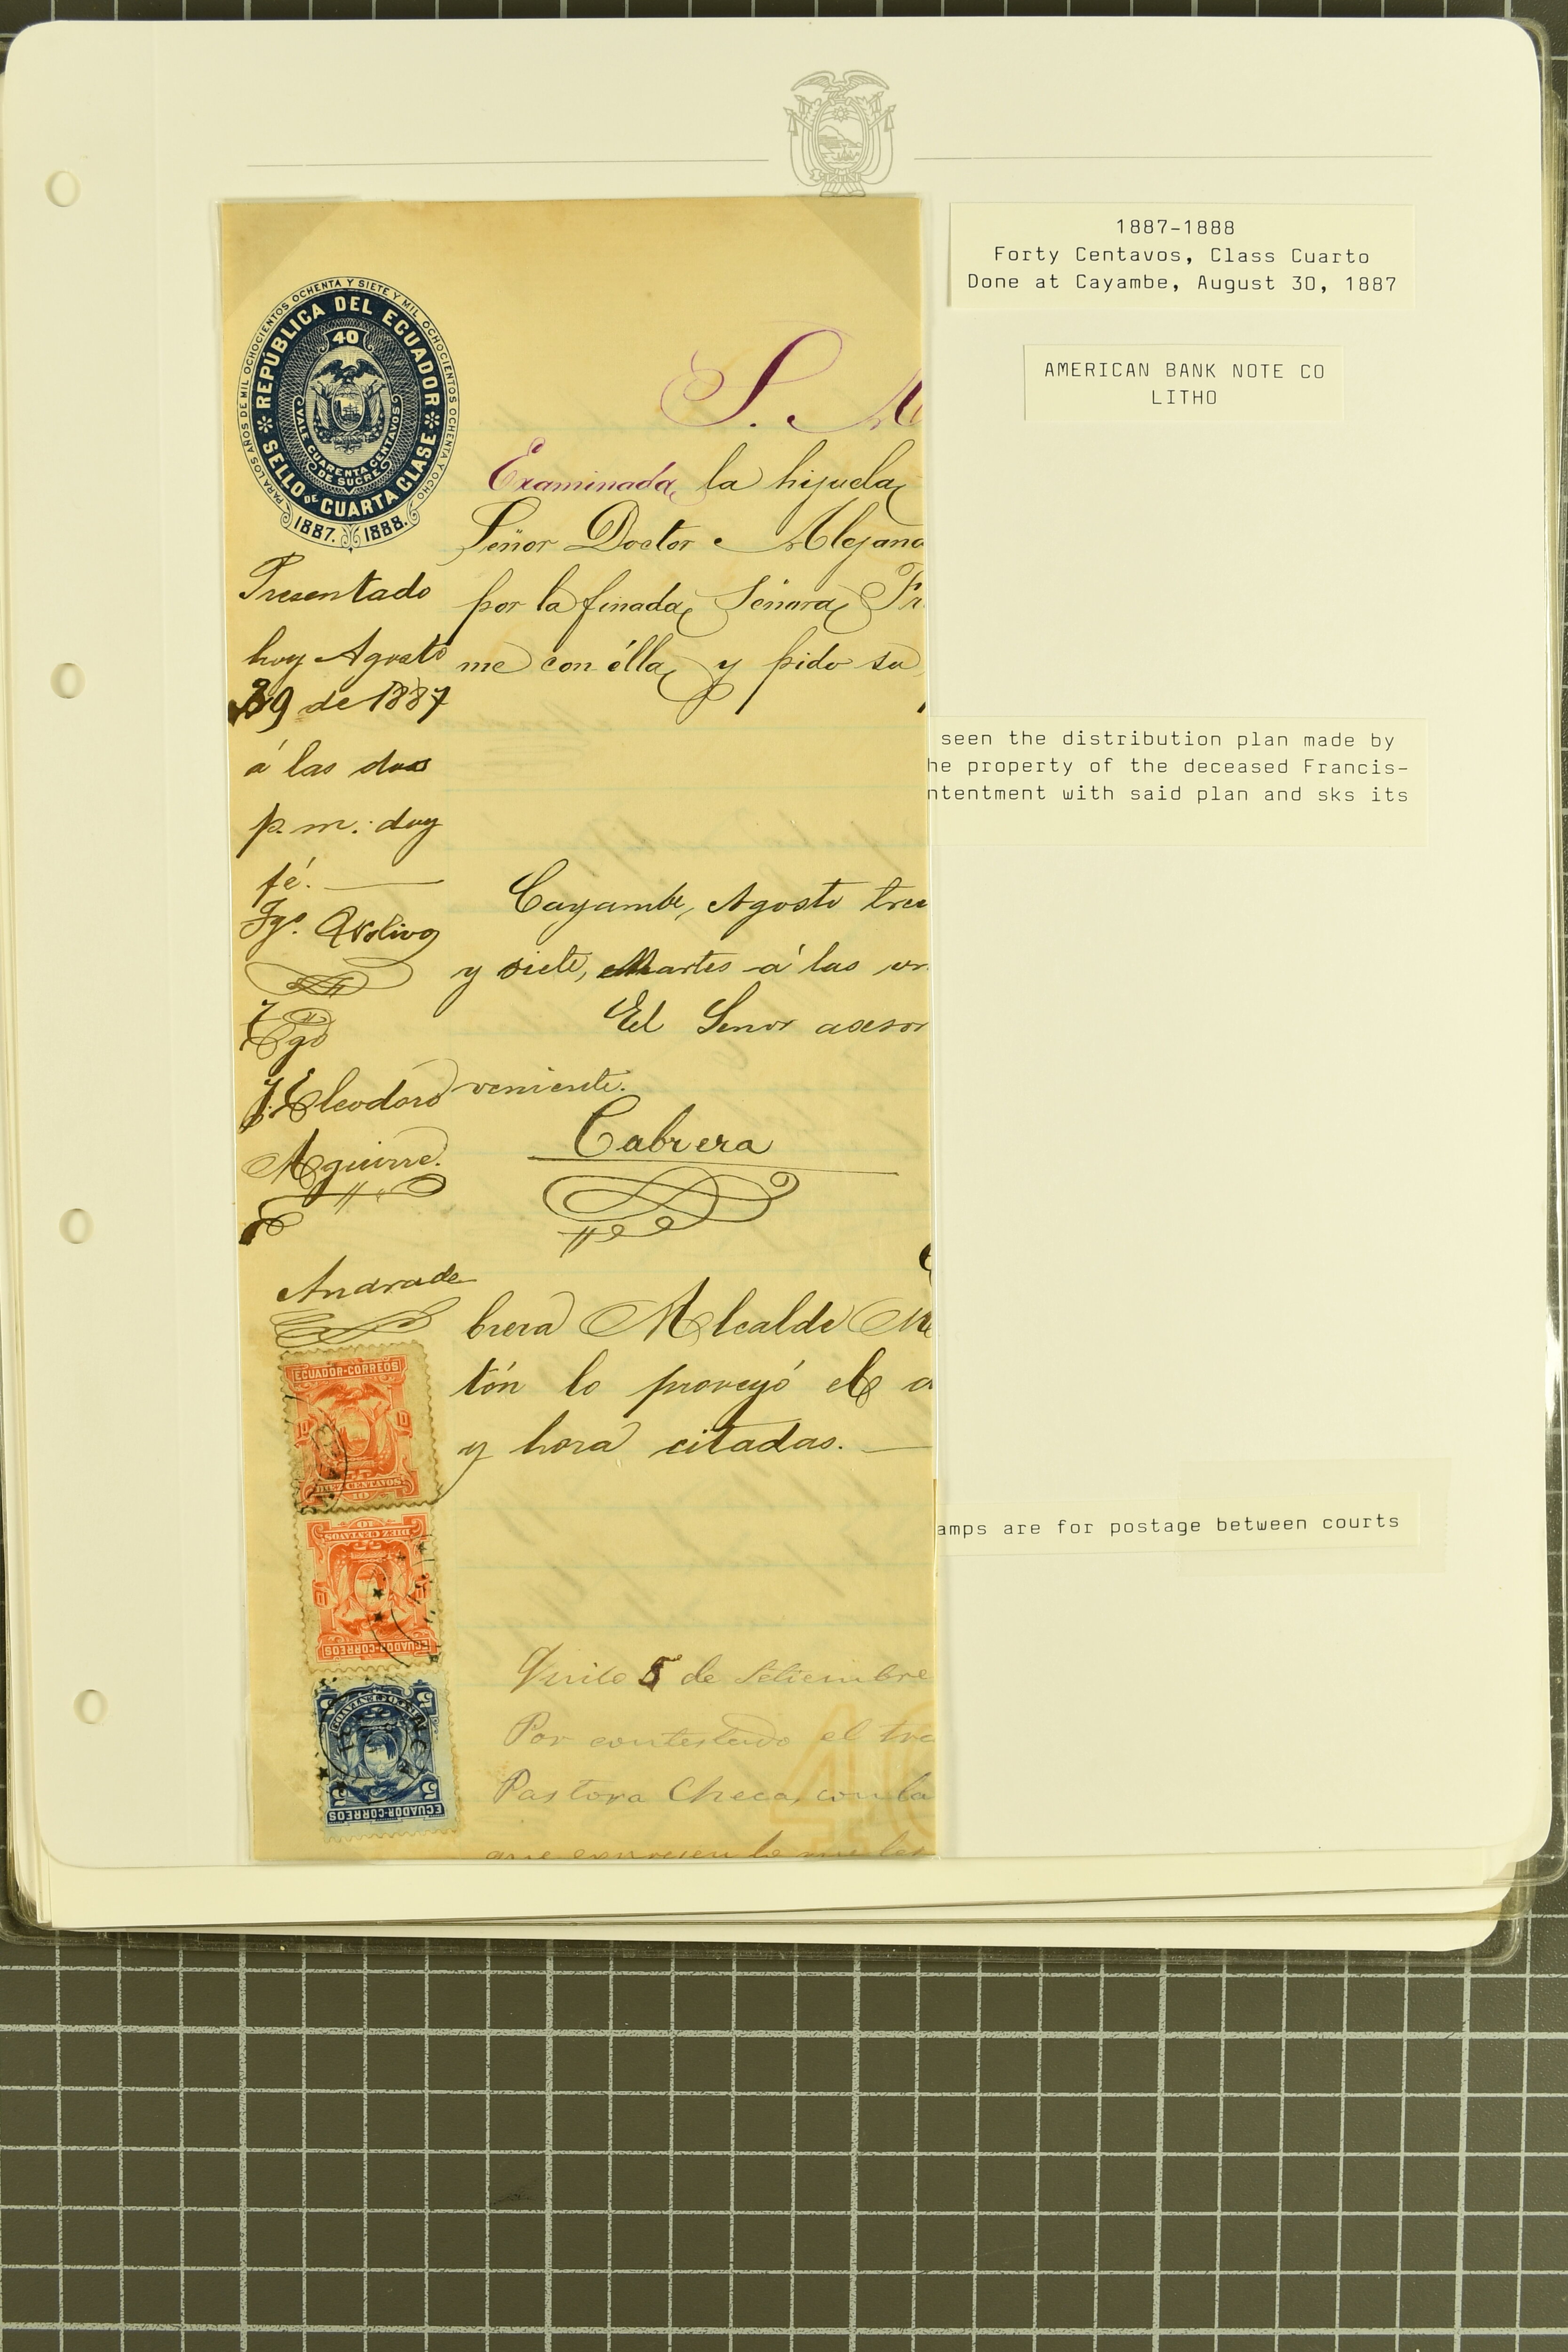 1887-1888
Forty Centavos, Class Cuarto
Done at Cayambe, August 30, 1887
AMERICAN BANK NOTE CO
LITHO
PARA LOS AÑOS DE MIL OCHOCIENTOS OCHENTA Y SIETE Y MIL OCHOCIENTOS OCHENTA Y OCHO
REPÚBLICA DEL ECUADOR
40
VALE CUARENTA CENTAVOS
DE SUCRE
SELLO DE CUARTA CLASE
1887. 1888.
S.
Examinada la hijuela
Señor Doctor Alejand
por la finada Señora Fr
me con élla y pido su
Presentado
hoy Agosto
29 de 1887
á las dos
p. m.: doy
fé.
Tgo
J. Eleodoro
Aguirre.
Andrade
seen the distribution plan made by
he property of the deceased Francis-
ntentment with said plan and sks its
Cayambe, Agosto trei
y siete, Martes á las
El Señor asesor
veniente.
Cabrera
brera Alcalde
tón lo proveyó el
y hora citadas.
ECUADOR-CORREOS
10 10
DIEZ CENTAVOS
10
10
DIEZ CENTAVOS
10 10
ECUADOR-CORREOS
5 5
ECUADOR-CORREOS
amps are for postage between courts
Quito 5 de Setiembre
Por contestado el tra
Pastora Checa, con la
40